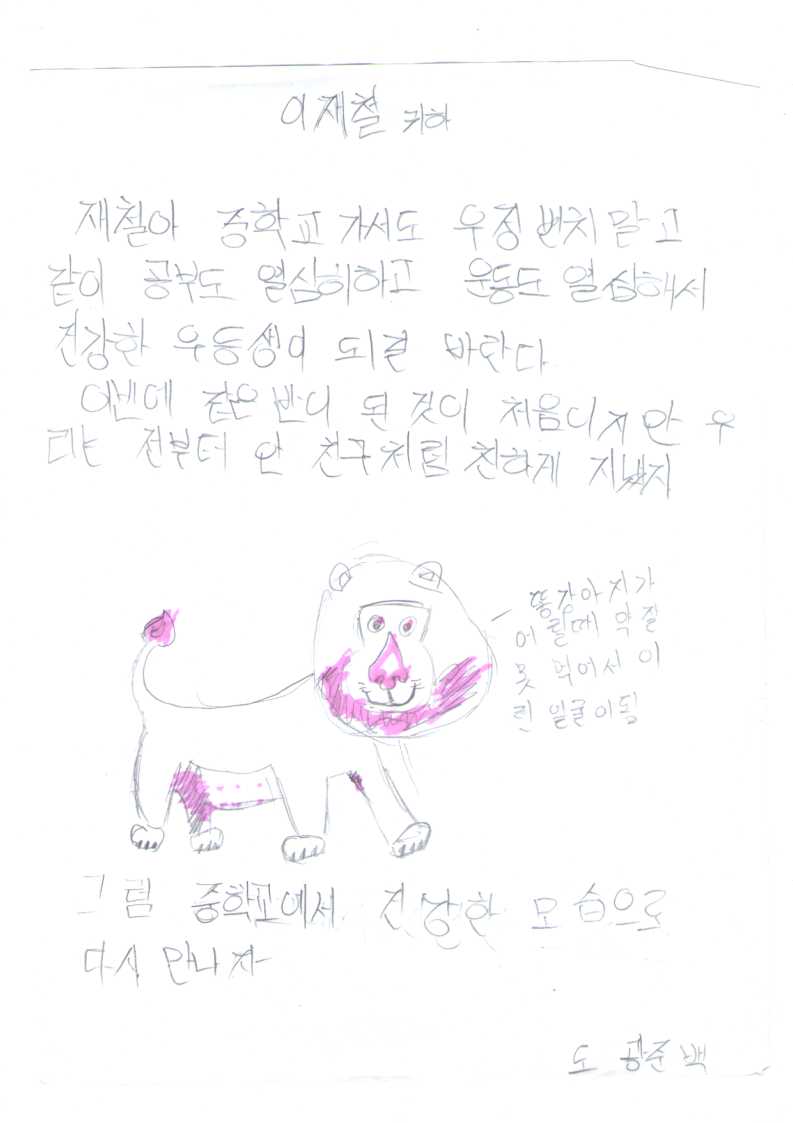 이재철 귀하
재철아 중학교 가서도 우정 변치 말고
같이 공부도 열심히하고 운동도 열심해서
건강한 우등생이 되길 바란다
이번에 같은 반이 된 것이 처음이지만 우
리는 전부터 안 친구처럼 친하게 지냈지
똥강아지가
어릴때 막 잘
못 먹어서 이
런 얼굴이됨
그럼 중학교에서 건강한 모습으로
다시 만나자